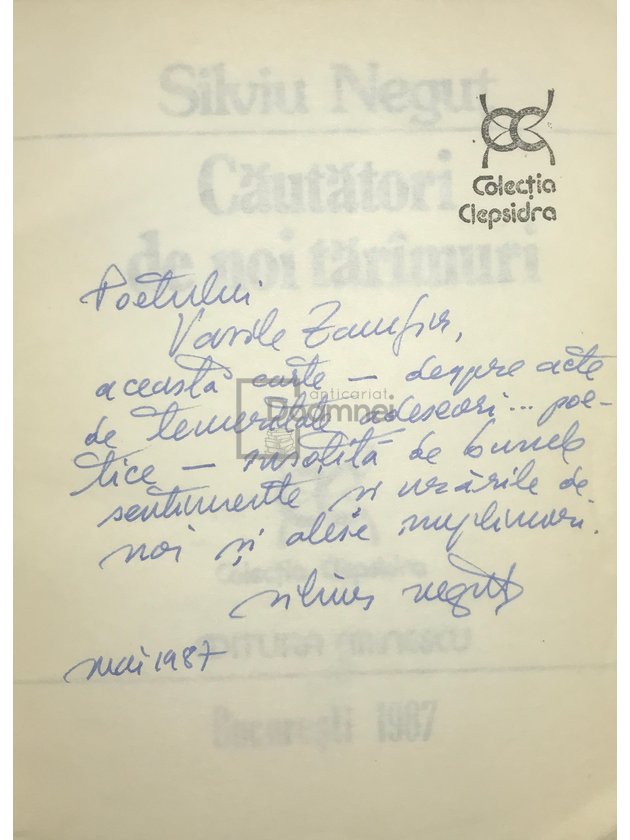 Silviu Negut
Colecția
Clepsidra
Căutători
de noi tărîmuri
Poetului
Vasile Zamfir,
această carte — despre acte
anticariat
Doamnei
de temeritate adeseori... poe-
tice — însoțită de bunele
sentimente și urările de
noi și alese împliniri.
Colecția Clepsidra
silviu neguț
EDITURA EMINESCU
mai 1987
București 1987